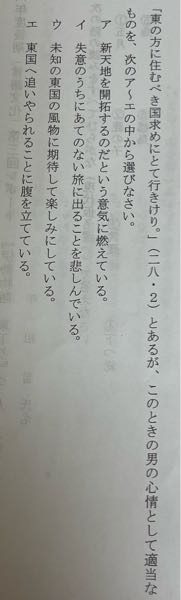 「東の方に住むべき国求めにとて行きけり。」(二八・2)とあるが、このときの男の心情として適当な
ものを、次のア〜エの中から選びなさい。
ア 新天地を開拓するのだという意気に燃えている。
イ 失意のうちにあてのない旅に出ることを悲しんでいる。
ウ 未知の東国の風物に期待して楽しみにしている。
エ 東国へ追いやられることに腹を立てている。